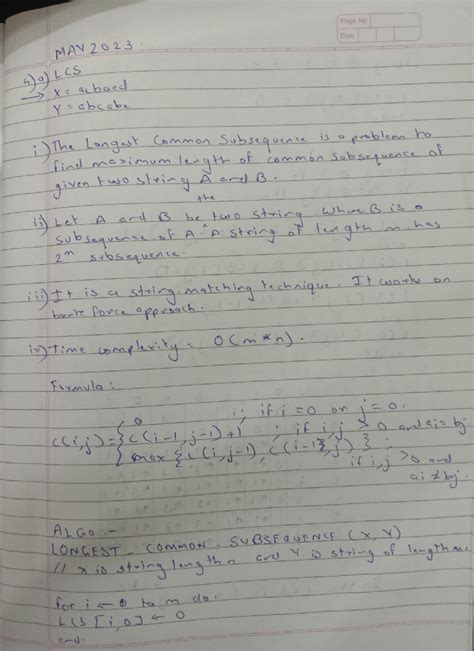 Page No.
Date
MAY 2023.
4) a) LCS
→ X = acbaed
Y = abcabe
i) The Longest Common Subsequence is a problem to
find maximum length of common subsequence of
given two string A and B.
ii) Let A and B be the two string where B is a
subsequence of A. A string of length m has
2^m subsequence.
iii) It is a string matching technique. It works on
brute force approach.
iv) Time complexity = O(m*n).
Formula:
0 ; if i = 0 or j = 0.
c(i,j) = { c(i-1, j-1)+1 ; if i,j > 0 and ai = bj
max { c(i, j-1) c(i-1, j) } ; if i,j > 0 and
ai ≠ bj.
ALGO -
LONGEST - COMMON - SUBSEQUENCE (X, Y)
// X is string length n and Y is string of length m
for i ← 0 to m do.
LCS [i, 0] ← 0
end.